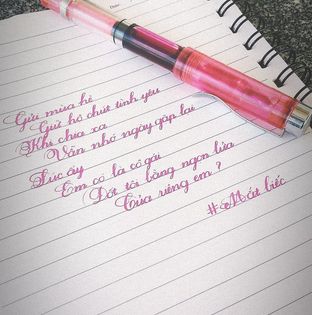 Gửi mùa hè
Giữ hộ chút tình yêu
Khi chia xa
Vẫn nhớ ngày gặp lại
Lúc ấy
Em có là cô gái
Đốt tôi bằng ngọn lửa
Của riêng em ?
#Mắt biếc